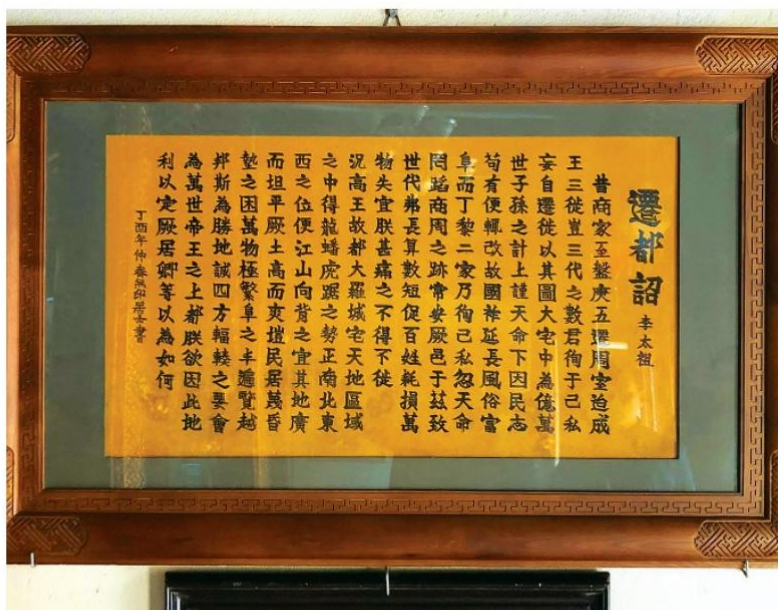 遷都詔 李太祖
昔商家至盤庚五遷周室迨成
王三徙豈三代之數君徇于己私
妄自遷徙以其圖大宅中為億萬
世子孫之計上謹天命下因民志
苟有便輒改故國祚延長風俗富
阜而丁黎二家乃徇己私忽天命
罔蹈商周之跡常安厥邑于茲致
世代弗長算數短促百姓耗損萬
物失宜朕甚痛之不得不徙
況高王故都大羅城宅天地區域
之中得龍蟠虎踞之勢正南北東
西之位便江山向背之宜其地廣
而坦平厥土高而爽塏民居蔑昏
墊之困萬物極繁阜之丰遍覽越
邦斯為勝地誠四方輻輳之要會
為萬世帝王之上都朕欲因此地
利以定厥居卿等以為如何
丁酉年仲春